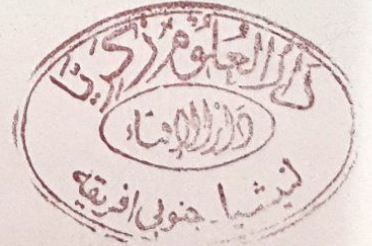 دار العلوم زكريا
دار الإفتاء
لينيشيا جنوبي افريقيه